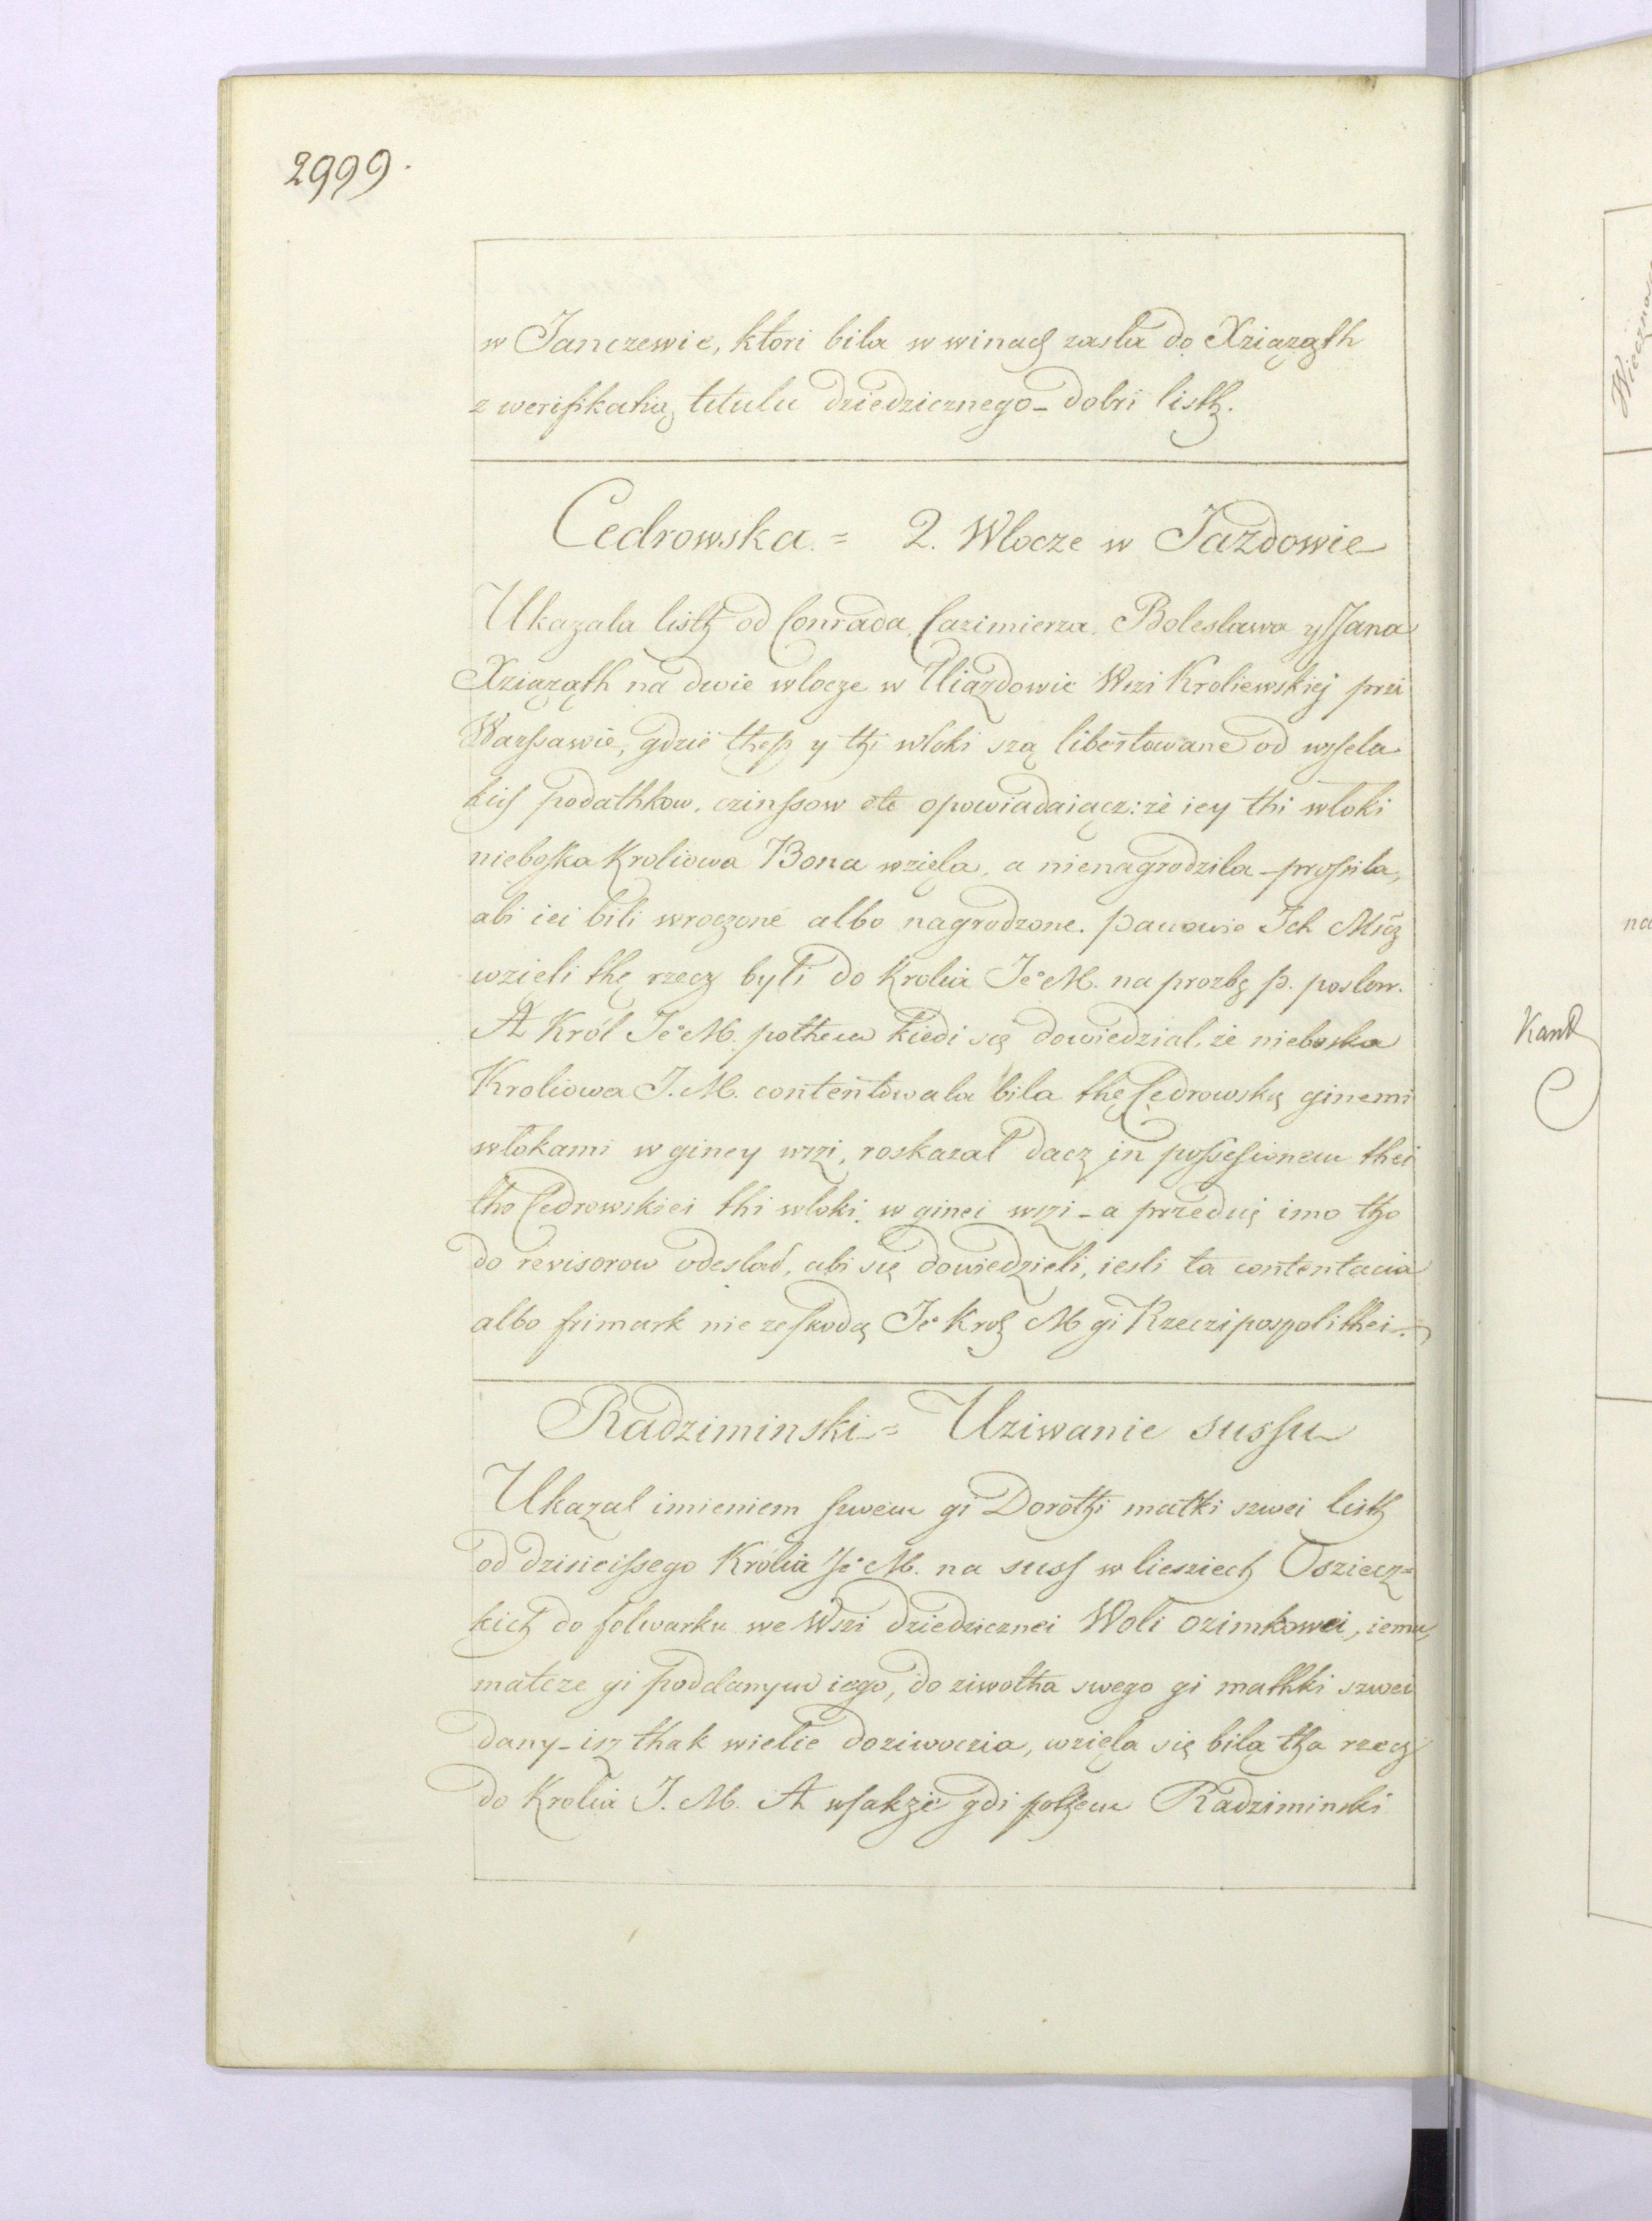 2999.
w Janczewie, ktori bila w winach zasła do Xziążąth
z werifikatią titulu dziedzicznego – dobri listh.
Cedrowska = 2. Wlocze w Jazdowie
Ukazala listh od Conrada, Cazimierza, Boleslawa y Jana
Xziążąth na dwie wlocze w Uiazdowie Wszi Kroliewskiej przi
Warssawie, gdzie thesz y thi wloki szą libertowane od wssela
kich podathkow, czinssow etc opowiadaiącz: że iey thi wloki
nieboska Kroliowa Bona wzięla, a nienagrodzila – prossila,
abi iei bili wroczone albo nagrodzone. panowie Ich Mścz
wzieli thę rzecz byli do Krolia Je° M. na prozbę p. poslow.
A Król Je° M. pothem kiedi się dowiedzial, że nieboska
Kroliowa J. M. contentowala bila thę Cedrowską ginemi
wlokami w giney wszi, roskazal dacz in possessionem thei
tho Cedrowskiei thi wloki w ginei wszi – a przedsię imo tho
do revisorow odeslać, abi się dowiedzieli, iesli ta contentacia
albo frimark nie ze skodą Je° Krol M gi Rzeczipospolithei.
Radziminski = Uziwanie sussu
Ukazal imieniem swem gi Dorothi matki swei listh
od dzisieissego Królia Je° M. na suss w liesziech Osziecz=
kich do folwarku we Wszi dziedzicznei Woli ozimkowei, iemu,
matcze gi poddanym iego, do ziwotha swego gi mathki szwei
dany – isz thak wielie doziwoczia, wzięla się bila tha rzecz
do Krolia J. M. A wsakże gdi pothem Radziminski
Kank
na